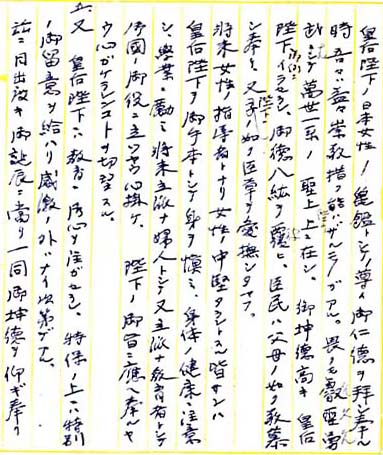 皇后陛下ノ日本女性ノ亀鑑トシテノ尊イ御仁徳ヲ拝シ奉ル
時吾々ハ益々崇敬措ク能ハザルモノガアル。畏クモ叡聖文
武ナル萬世一系ノ聖上上ニ在シ。御坤徳高キ皇后
陛下イラセラレ、御徳八紘ヲ覆ヒ、臣民ハ父母ノ如ク敬慕
シ奉リ、又赤子ノ如ク臣草ヲ愛撫シ給フ。
将来女性ノ指導者トナリ女性ノ中堅タラントスル皆サンハ
皇后陛下ヲ御手本トシテ身ヲ慎ミ、身体ノ健康ニ注意
シ、学業ニ励ミ将来立派ナ婦人トシテ又立派ナ教育者トシテ
御國ノ御役ニ立ツヤウ心掛ケ、陛下ノ御旨ニ應ヘ奉ルヤ
ウ心ガケラレンコトヲ切望スル。
五、又 皇后陛下ハ教育ニ御心ヲ注ガセラレ、特保ノ上ニハ特別
ノ御留意ヲ給ハリ感激ノ外ハナイ次第デアル。
茲ニ目出度キ御誕辰ニ當リ一同御坤徳ヲ仰ギ奉リ